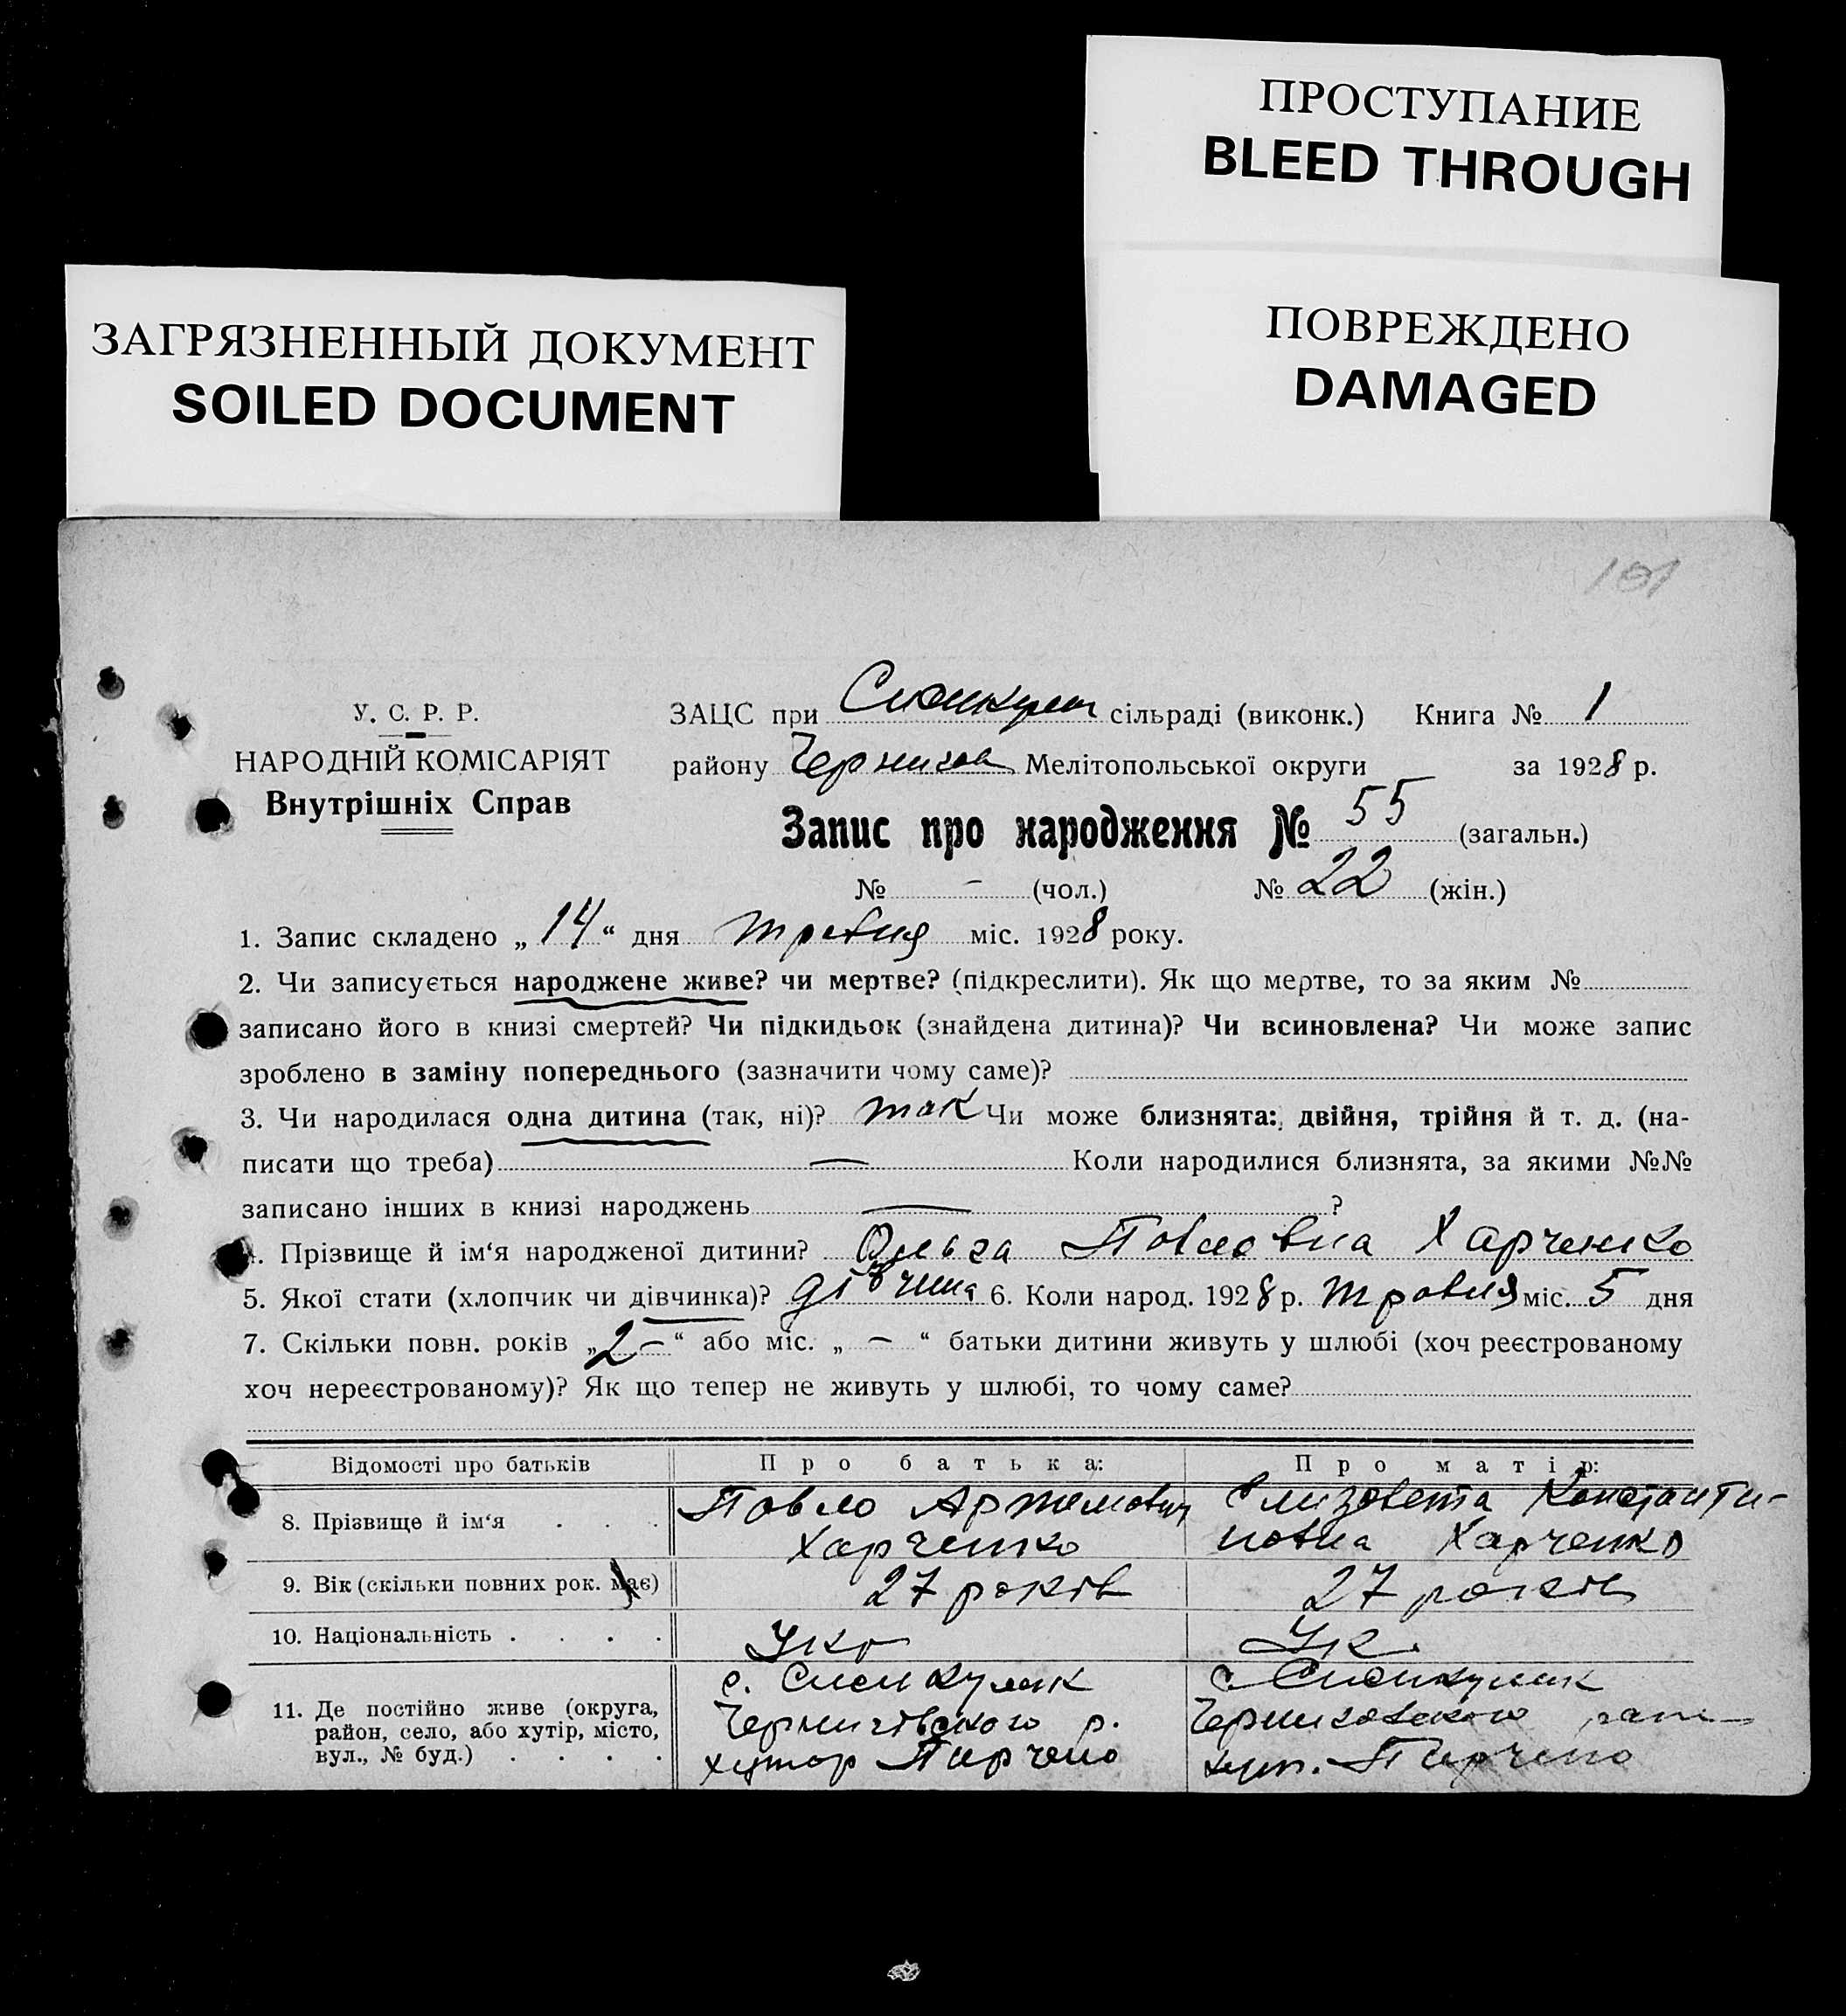 ПРОСТУПАНИЕ
BLEED THROUGH
ЗАГРЯЗНЕННЫЙ ДОКУМЕНТ
SOILED DOCUMENT
ПОВРЕЖДЕНО
DAMAGED
101
У. С. Р. Р.
НАРОДНІЙ КОМІСАРІЯТ
Внутрішніх Справ
ЗАЦС при сільраді (виконк.) Книга № 1
району Чернигов Мелітопольської округи за 1928 р.
Запис про народження № 55 (загальн.)
№ - (чол.) № 22 (жін.)
1. Запис складено „ 14 “ дня травня міс. 1928 року.
2. Чи записується народжене живе? чи мертве? (підкреслити). Як що мертве, то за яким №
записано його в книзі смертей? Чи підкидьок (знайдена дитина)? Чи всиновлена? Чи може запис
зроблено в заміну попереднього (зазначити чому саме)?
3. Чи народилася одна дитина (так, ні)? так Чи може близнята: двійня, трійня й т. д. (на-
писати що треба) — Коли народилися близнята, за якими №№
записано інших в книзі народжень — ?
. Прізвище й ім‘я народженої дитини? Ольга Павловна Харченко
5. Якої стати (хлопчик чи дівчинка)? дівчина 6. Коли народ. 1928 р. травня міс. 5 дня
7. Скільки повн. років „ 2 – “ або міс. „ – “ батьки дитини живуть у шлюбі (хоч реєстрованому
хоч нереєстрованому)? Як що тепер не живуть у шлюбі, то чому саме?
Відомості про батьків Про батька: Про матір:
8. Прізвище й ім‘я . . . Павло Артемович Харченко Елизавета Константи-
новна Харченко
9. Вік (скільки повних рок. має) 27 років 27 років
10. Національність . . . . Укр Ук.
11. Де постійно живе (округа,
район, село, або хутір, місто,
вул., № буд.) . . . .
с.
Чернигівського р.
хутор
с.
Черниговского
хут.